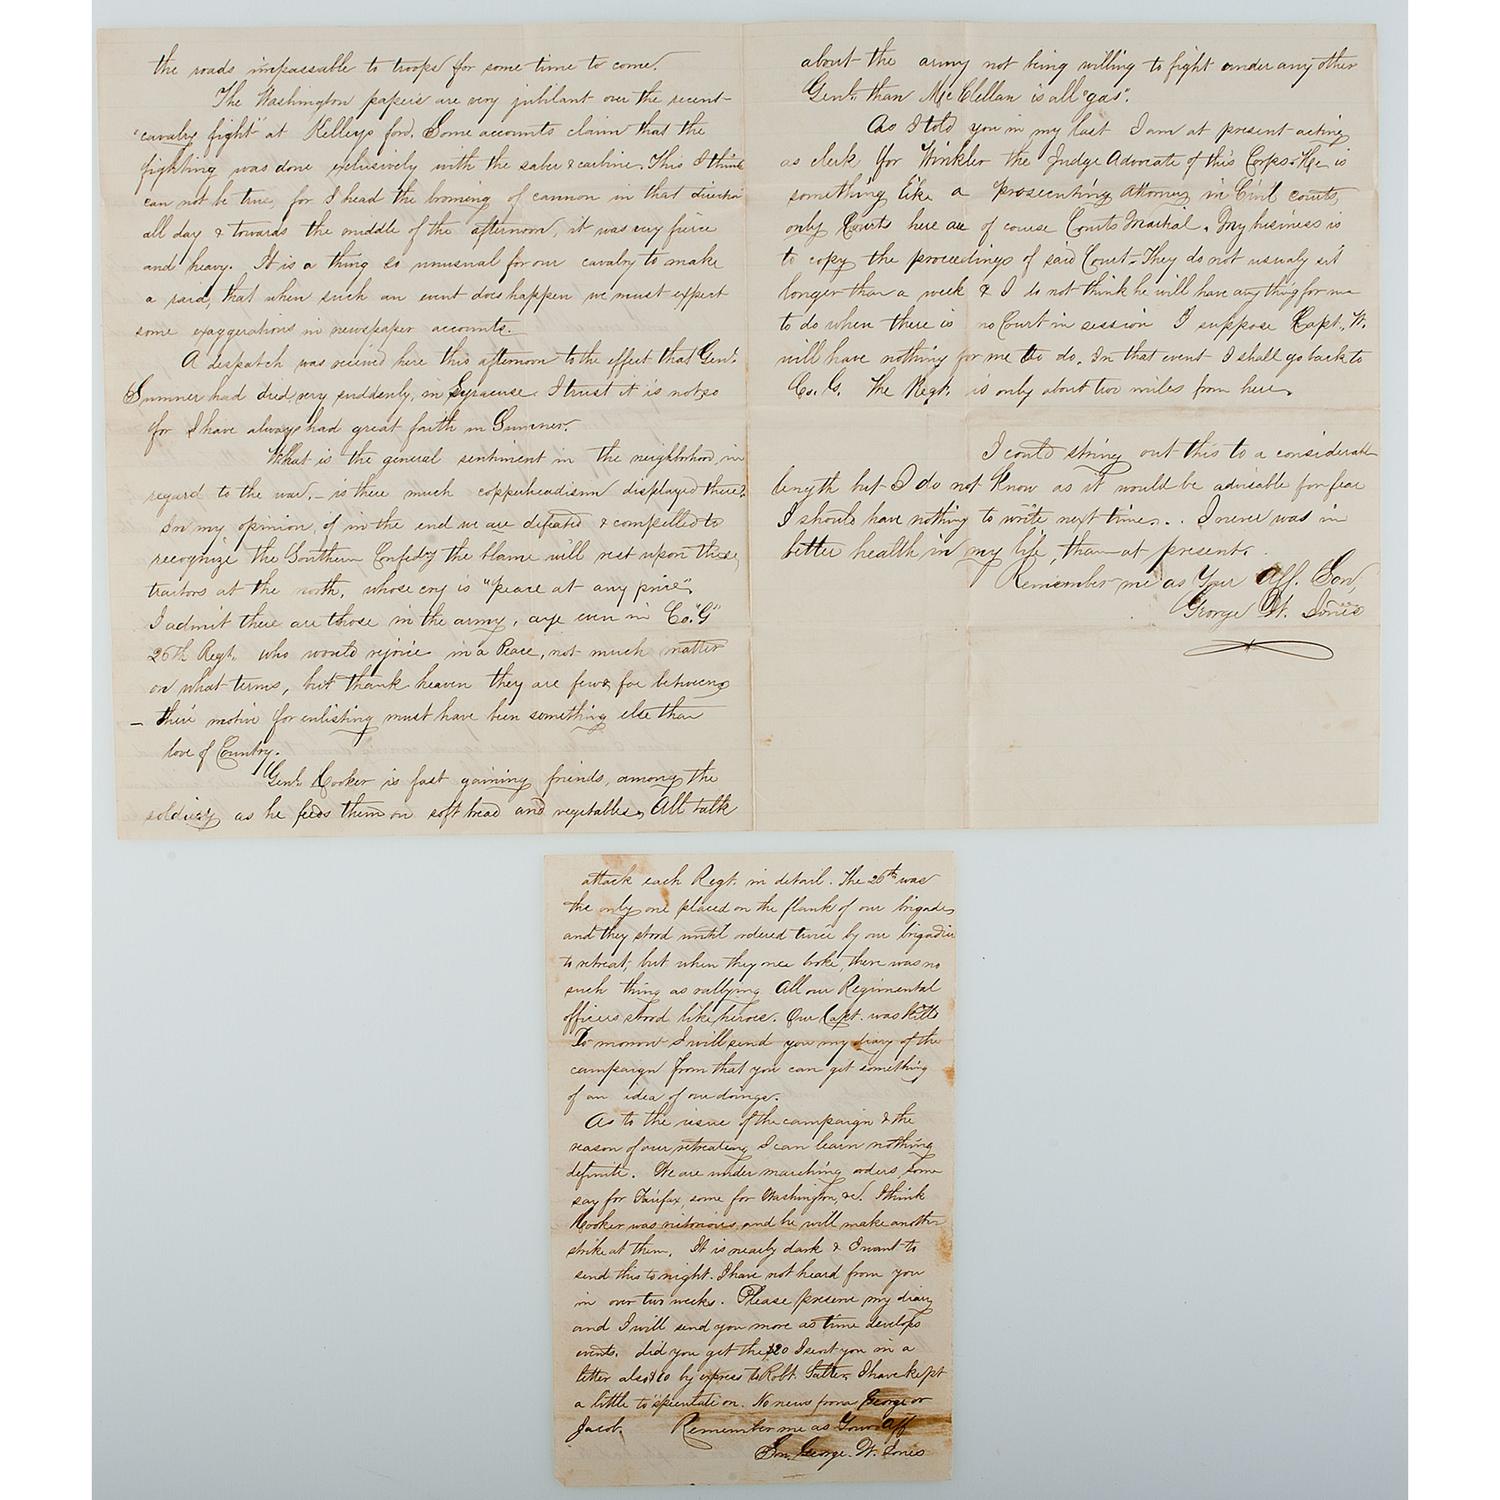 the roads impassable to troops for some time to come.
The Washington papers are very jubilant over the recent
"cavalry fight" at Kellleys ford. Some accounts claim that the
fighting was done exlusively with the saber & carbine. This I think
can not be true, for I head the broming of cannon in that direction
all day & towards the middle of the afternoon, it was very fierce
and heavy. It is a thing so unusual for our cavalry to make
a raid, that when such an event does happen we must expect
some exaggerations in newspaper accounts.
A dispatch was received here this afternoon to the effect that Genl.
Sumner had died very suddenly, in Syracuse. I trust it is not so
for I have always had great faith in Sumner.
What is the general sentiment in the neighborhood, in
regard to the war, - is there much coppheadism displayed there?
In my opinion, if in the end we are defeated & compelled to
recognize the Southern Confedcy the blame will rest upon those
traitors at the north, whose cry is "peace at any price".
I admit there are those in the army, aye even in Co. "G"
26th Regt. who would rejoice in a Peace, not much matter
on what terms, but thank heaven they are few & far between
- their motive for enlisting must have been something else than
love of Country.
Genl. Hooker is fast gaining friends, among the
soldiers as he feeds them on soft bread and vegetables. All talk
about the army not being willing to fight under any other
Genl. than McClellan is all "gas".
As I told you in my last I am at present acting
as clerk for Winkler the Judge Advocate of this Corps. He is
something like a prosecuting Attorney in Civil courts,
only Courts here are of course Courts Martial. My business is
to copy the proceedings of said Court. They do not usualy sit
longer than a week & I do not think he will have any thing for me
to do when there is no Court in session I suppose Capt. W.
will have nothing for me to do. In that event I shall go back to
Co. G. The Regt. is only about two miles from here.
I could string out this to a considerable
length but I do not know as it would be advisable for fear
I should have nothing to write next time. . . I never was in
better health in my life, than at present.
Remember me as Your Aff. Son,
George W. Jones
attack each Regt. in detail. The 26th was
the only one placed on the flank of our brigade
and they stood until ordered twice by our brigadier
to retreat, but when they once broke, there was no
such thing as rallying. All our Regimental
officers stood like heroes. Our Capt. was killed
To morrow I will send you my diary of the
campaign from that you can get something
of an idea of our doings.
As to the issue of the campaign & the
reason of our retreating I can learn nothing
definite. We are under marching orders, some
say for Fairfax, some for Washington, &c. I think
Hooker was victorious, and he will make another
strike at them. It is nearly dark & I want to
send this to night. I have not heard from you
in over two weeks. Please preserve my diary
and I will send you more as time develops
events. did you get the $20 I sent you in a
letter also $10 by express to Robt. I have kept
a little to "speculate on. No news from George or
Jacob. Remember me as Your Aff
Son, George. W. Jones